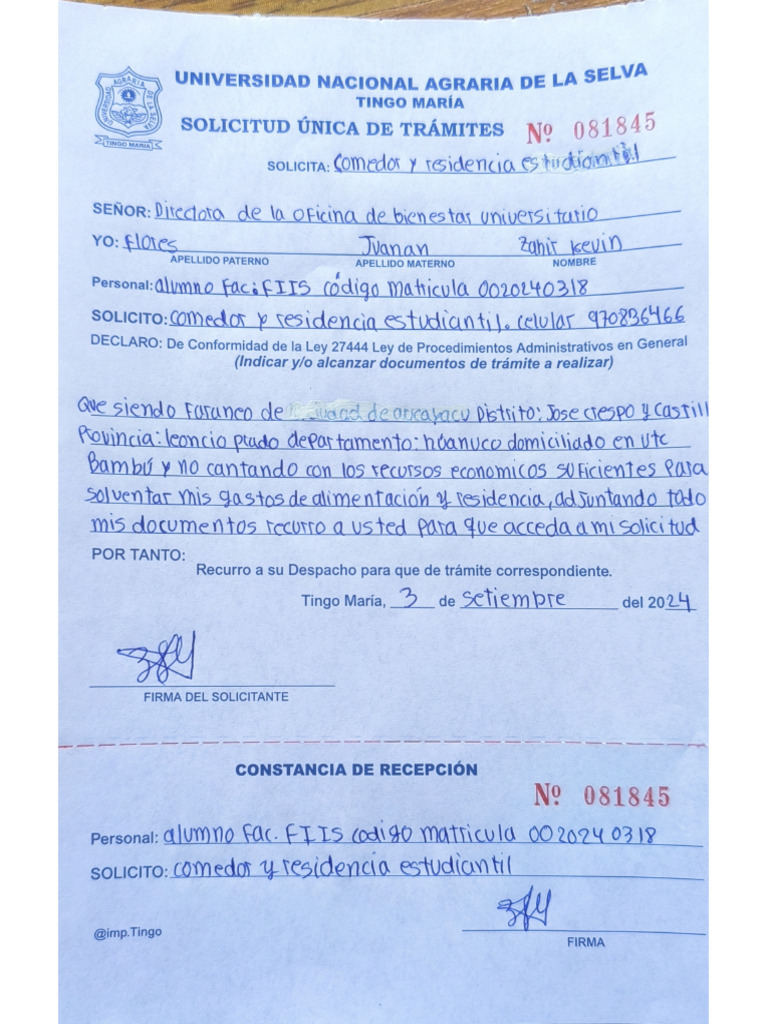 UNIVERSIDAD NACIONAL AGRARIA DE LA SELVA
TINGO MARÍA
SOLICITUD ÚNICA DE TRÁMITES Nº 081845
UNIVERSIDAD AGRARIA DE LA SELVA
TINGO MARIA
SOLICITA: Comedor y residencia estudiantil
SEÑOR: Directora de la oficina de bienestar universitario
YO: flores Jvanan Zahir Kevin
APELLIDO PATERNO APELLIDO MATERNO NOMBRE
Personal: alumno Fac. FIIS código matricula 0020240318
SOLICITO: comedor y residencia estudiantil. celular 970836466
DECLARO: De Conformidad de la Ley 27444 Ley de Procedimientos Administrativos en General
(Indicar y/o alcanzar documentos de trámite a realizar)
Que siendo Faraneo de ciudad de aucayacu Distrito: Jose crespo y Castill
Provincia: leoncio prado departamento: húanuco domiciliado en utc
Bambú y no cantando con los recursos economicos suficientes para
solventar mis gastos de alimentación y residencia, adjuntando todo
mis documentos recurro a usted para que acceda a mi solicitud
POR TANTO:
Recurro a su Despacho para que de trámite correspondiente.
Tingo María, 3 de setiembre del 2024
FIRMA DEL SOLICITANTE
CONSTANCIA DE RECEPCIÓN
Nº 081845
Personal: alumno Fac. FIIS codigo matricula 0020240318
SOLICITO: comedor y residencia estudiantil
@imp.Tingo
FIRMA